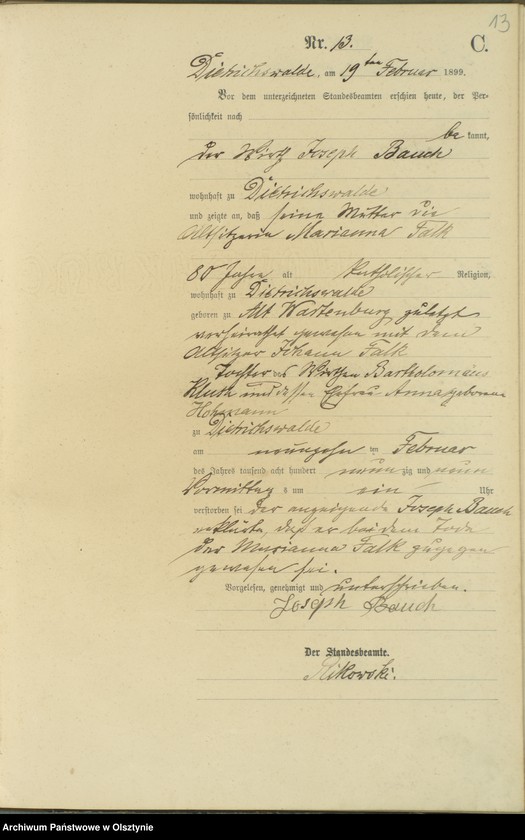 13
Nr. 13.
C.
Dietrichswalde, am 19ten Februar 1899.
Vor dem unterzeichneten Standesbeamten erschien heute, der Per-
sönlichkeit nach
be kannt,
der Wirth Joseph Bauch
wohnhaft zu Dietrichswalde
und zeigte an, daß seine Mutter die
Altsitzerin Marianna Falk
80 Jahre alt katholischer Religion,
wohnhaft zu Dietrichswalde
geboren zu Alt Wartenburg, zuletzt
verheirathet gewesen mit dem
Altsitzer Johann Falk
Tochter des Wirthen Bartholomäus
Kluth und dessen Ehefrau Anna geborene
zu Dietrichswalde
am neunzehn ten Februar
des Jahres tausend acht hundert neun zig und neun
Vormittag s um ein Uhr
verstorben sei der anzeigende Joseph Bauch
erklärte, daß er bei dem Tode
der Marianna Falk zugegen
gewesen sei.
Vorgelesen, genehmigt und unterschrieben.
Joseph Bauch
Der Standesbeamte.
Archiwum Państwowe w Olsztynie